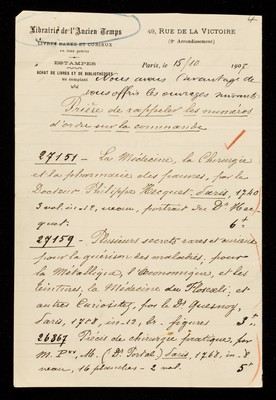 Librairie de l'Ancien Temps
LIVRES RARES ET CURIEUX
en tous genres
ESTAMPES
ACHAT DE LIVRES ET DE BIBLIOTHÈQUES
au comptant
49, RUE DE LA VICTOIRE
(9e Arrondissement)
Paris, le 15/10 190
Nous avons l'avantage de
vous offrir les ouvrages suivants
Prière de rappeler les numéros
d'ordre sur la commande
27151 - La Médecine, la Chirurgie
et la pharmacie des pauvres, par le
Docteur Philippe Hecquet. Paris, 1740
3 vol. in-12, veau, portrait du Dr Hec-
quet. 6f
27159 - Plusieurs secrets rares et curieux
pour la guérison des maladies, pour
la Métallique, l'Economique, et les
teintures, la Médecine du
autres Curiosités, par le Dr Quesnoy,
Paris, 1708, in-12, br. figures 3f
26367 Précis de chirurgie pratique, par
M. P***, M. (Dr Portal) Paris, 1768, in-8
veau, 16 planches - 2 vol. 5f